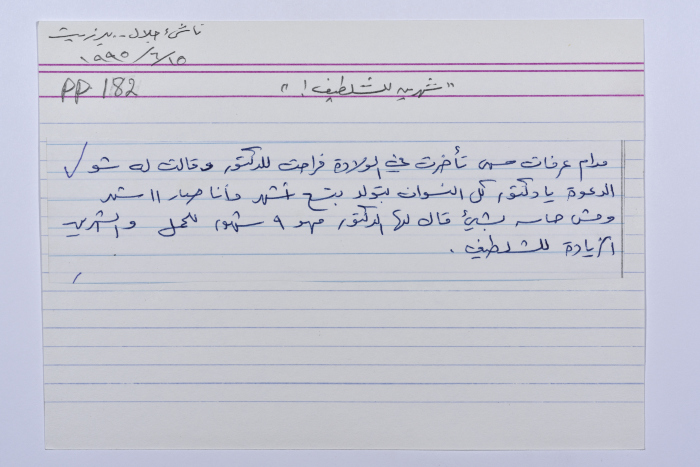 ناشئ جلال - بيرزيت
١٩٩٥/٦/١٥
PP 182
"شهرين للشلطيف!"
مدام عرفات تأخرت في الولادة فراحت للدكتور وقالت له شو
الدعوة يا دكتور كل النسوان بتولد بتسع أشهر وأنا صار ١١ شهر
ومش حاسه بشيئ قال لها الدكتور مهو ٩ شهور للحمل والشهرين
الزيادة للشلطيف .